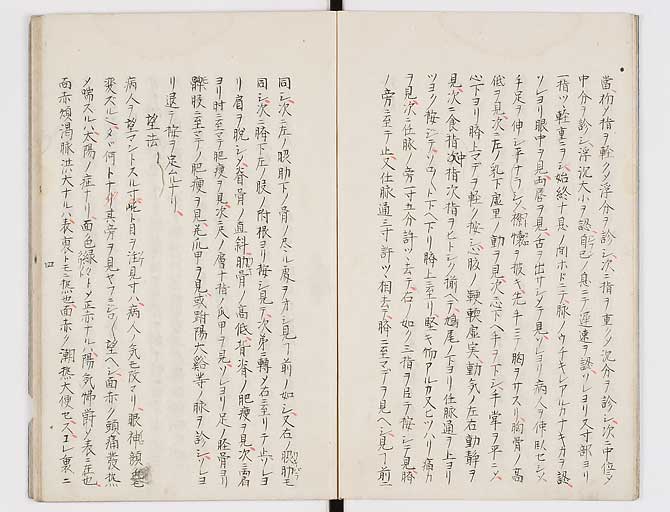 當初ノ指ヲ軽ク浮分ヲ診シ次ニ指ヲ重クシ沉分ヲ診シ次ニ中位シ
中分ヲ診シ浮沉大小ヲ認自己ノ息ニテ遲速ヲ認ソレヨリ三寸部ヨリ
一指ツヽ軽重ニヲシ始終十息ノ間ホドニテ脉ノウチキレアルカナキカヲ認
ソレヨリ眼中ヲ見両唇ヲ見舌ヲ出サシメテ見ソレヨリ病人ヲ仰臥セシメ
手足ヲ伸シ平ナラシメ襟懐ヲ披キ先手ニテ胸ヲサスリ胸骨ノ高
低ヲ見次ニ左ノ乳下虚里ノ動ヲ見次ニ心下ヘ手ヲ下シ手掌ヲ平ニシ
心下ヨリ臍上マデヲ軽ク按シ心腹ノ鞕軟虚実動気ノ左右動静ヲ
見次ニ食指中指次指ヲヒトシク揃ヘテ鳩尾ノ下ヨリ任脉通ヲ上ヨリ
ツヨク按シテソロ〱ト下ヘ下リ臍上ニ至リ堅キ物アルカ又ヒツハリ痛カ
ヲ見次ニ任脉ノ旁一寸五分許ツヽ去テ右ノ如ク三指ヲ以テ按シテ見臍
ノ旁ニ至テ止又任脉通三寸許ツヽ相去テ臍ニ至マデヲ見ヘシ見ヿ前ニ
同シ次ニ左ノ肋下ノ骨ノ尽ル處ヲオシ見ヿ前ノ如シ又右ノ肋モ
同シ次ニ臍下左ノ股ノ附根ヨリ按シ見テ次第ニ轉メ右ニ至リテ止ソレヨ
リ肩ヲ脱シメ脊骨ノ直斜肋骨ノ高低背脊ノ肥痩ヲ見次ニ両肩
ヨリ肘ニ至マテ肥痩ヲ見次ニ尺ノ膚十指ノ爪甲ヲ見ソレヨリ足ノ脛骨ヨリ
腰股ニ至マテノ肥痩ヲ見足爪甲ヲ見或趺陽大谿等ノ脉ヲ診シソレヨ
リ退テ按ヲ定ムルナリ
望法
病人ヲ望マントスル寸此ト目ヲ注見寸ハ病人ノ気モ改マリ眼神顔色
変スルヿアリ何トナク其旁ヲ見ヤフニシテ望ヘシ面赤ク頭痛發熱
メ喘スルハ太陽ノ症ナリ面ノ色縁々トメ正赤ナルハ陽気怫欝メ表ニ在也
面赤煩渇脉洪大ナルハ表裏トモニ熱也面赤ク潮熱大便セス𧮾ハ裏ニ
四